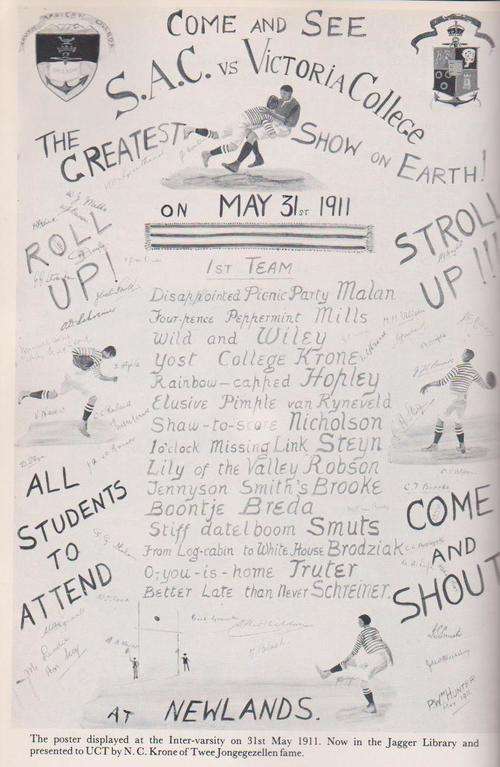 COME AND SEE
S.A.C. VS VICTORIA COLLEGE
THE GREATEST SHOW ON EARTH!
ON MAY 31st 1911
ROLL
UP!
STROLL
UP!!!
1ST TEAM
Disappointed Picnic Party Malan
Four-pence Peppermint Mills
Wild and Wiley
Yost College Krone
Rainbow-capped Hopley
Elusive Pimple van Ryneveld
Shaw-to-score Nicholson
1 o'clock Missing Link Steyn
Lily of the Valley Robson
Tennyson Smith's Brooke
Boontje Breda
Stiff datelboom Smuts
From Log-cabin to White House Brodziak
O, you-is-home Truter
Better Late than Never Schreiner.
ALL
STUDENTS
TO
ATTEND
COME
AND
SHOUT
AT NEWLANDS.
Wm HUNTER
The poster displayed at the Inter-varsity on 31st May 1911. Now in the Jagger Library and
presented to UCT by N. C. Krone of Twee Jongegezellen fame.